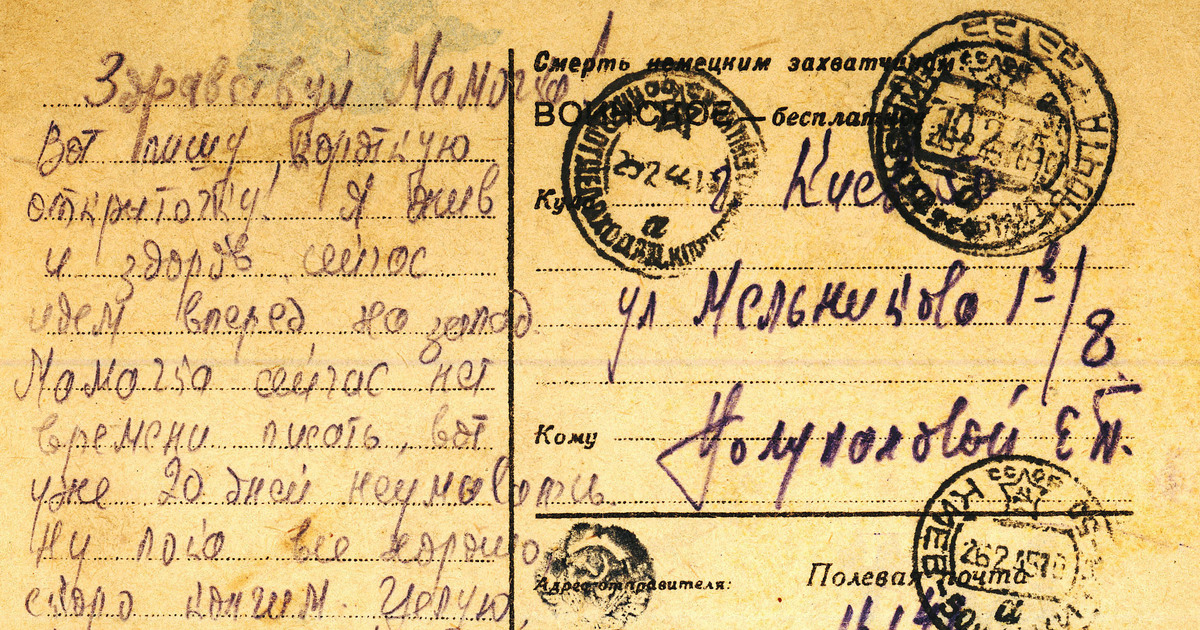 Здравствуй Мамочка
Вот пишу короткую
открыточку. Я жив
и здоров сейчас
идем вперед на запад.
Мамочка сейчас нет
времени писать, вот
уже 20 дней неумывались
Ну пока все хорошо
скоро кончим. Целую
Смерть немецким захватчикам
ВОИНСКОЕ — бесплатно
Куда г. Киев
ул Мельникова 1в/8
Кому Е.П.
Адрес отправителя:
Полевая почта
КИЕВ